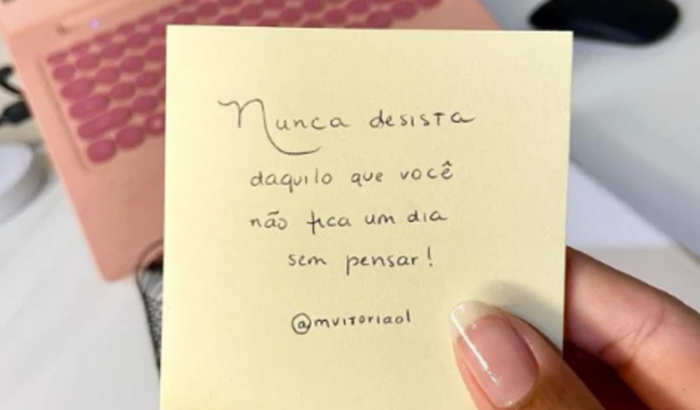 Nunca desista
daquilo que você
não fica um dia
sem pensar!
@mvitoriaol